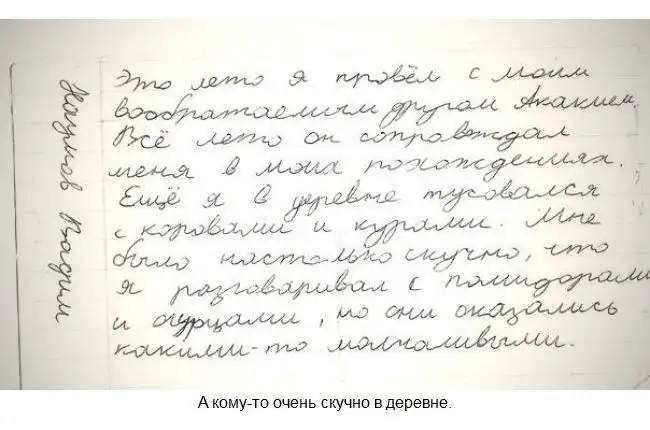 Наумов Вадим
Это лето я провёл с моим
воображаемым другом Акакием.
Всё лето он сопровждал
меня в моих похождениях.
Ещё я в деревне тусовался
с коровами и курями. Мне
было настолько скучно, что
я разговаривал с помидорами
и огурцами, но они оказались
какими-то молчаливыми.
А кому-то очень скучно в деревне.